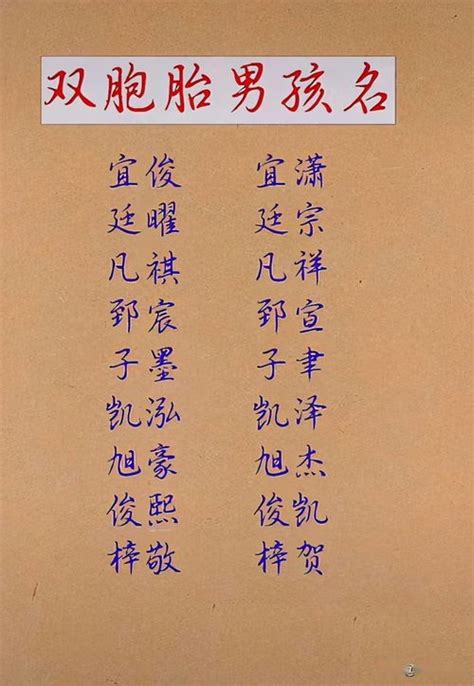 双胞胎男孩名
宜俊 宜潇
廷曜 廷宗
凡祺 凡祥
郅宸 郅宣
子墨 子聿
凯泓 凯泽
旭豪 旭杰
俊熙 俊凯
梓敬 梓贺